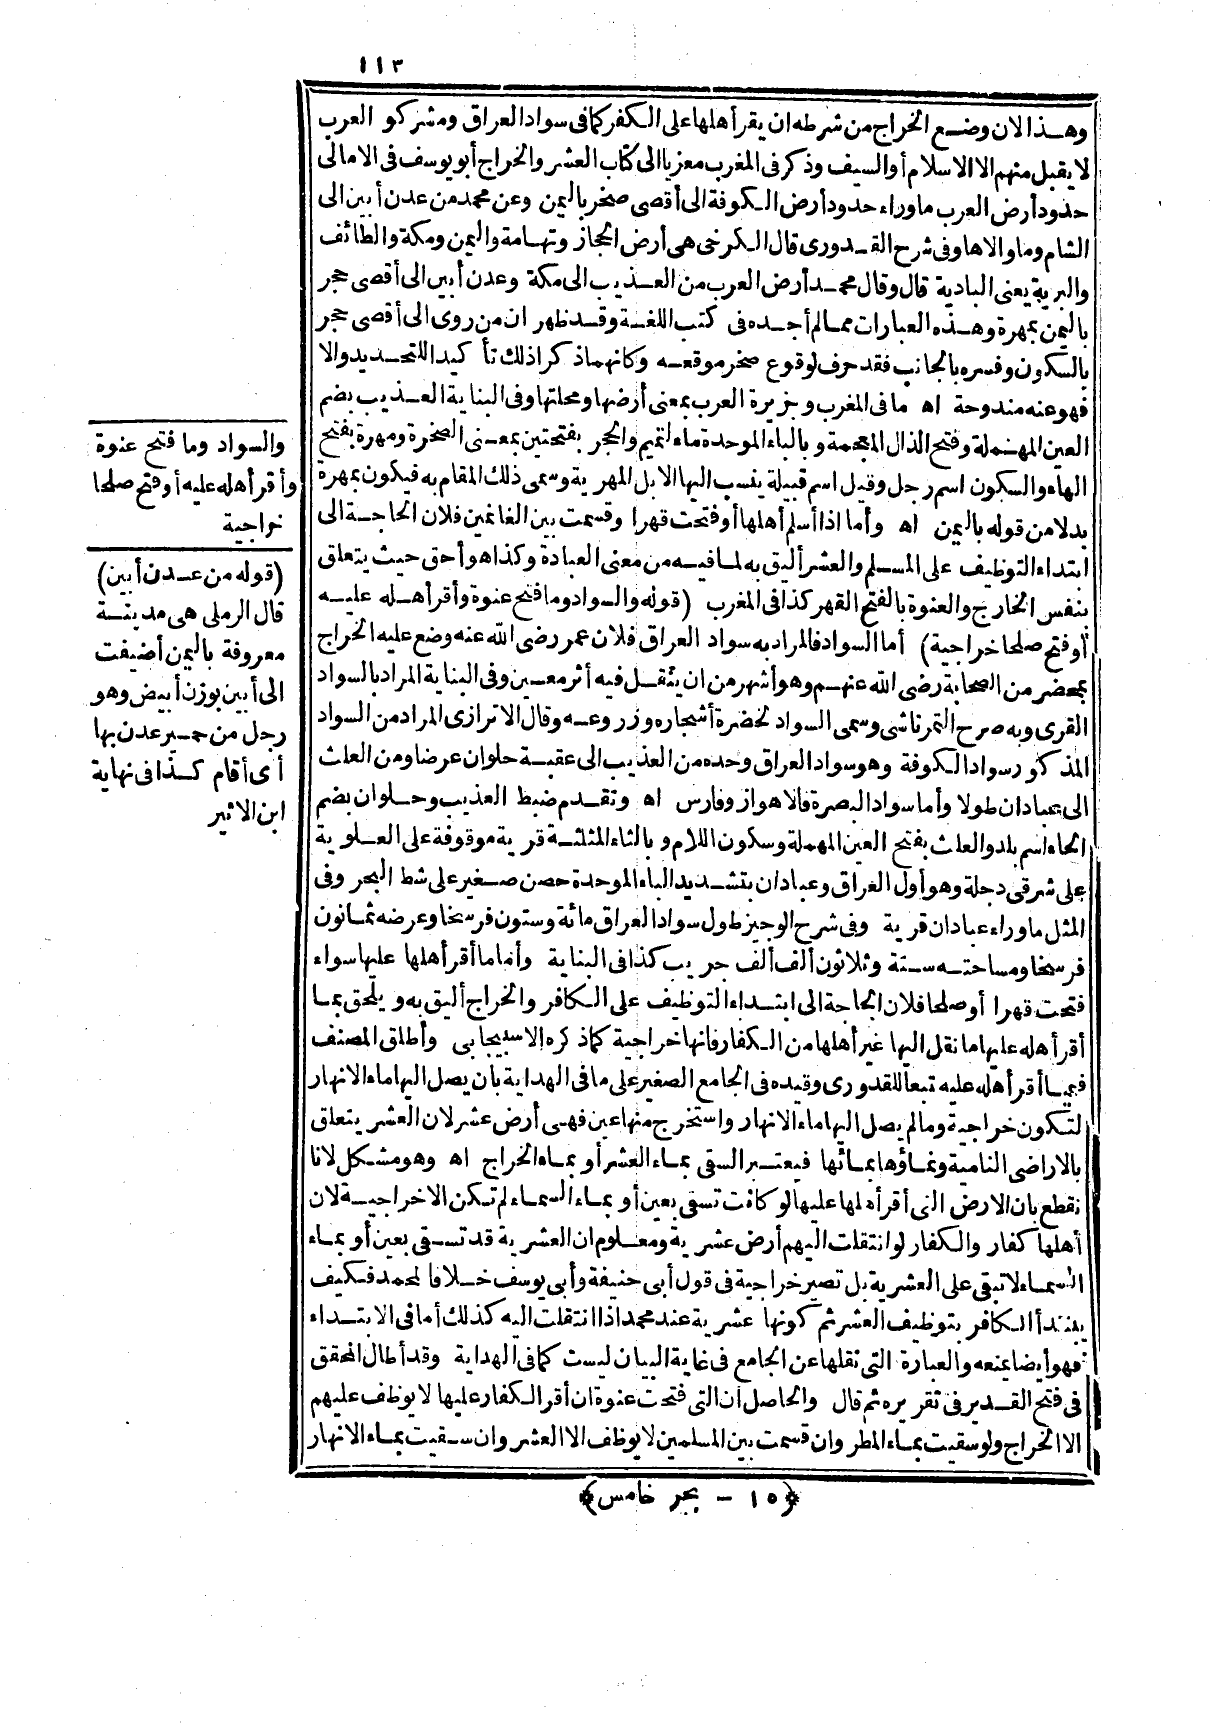 ١١٣
وهذا لان وضع الخراج من شرطه ان يقر أهلها على الكفر كما فى سواد العراق ومشركو العرب
لا يقبل منهم الا الاسلام أو السيف وذكر فى المغرب معزيا الى كتاب العشر والخراج أبو يوسف فى الامالى
حدود أرض العرب ما وراء حدود أرض الكوفة الى أقصى صخر باليمن وعن محمد من عدن أبين الى
الشام وما والاها وفى شرح القدورى قال الكرخى هى أرض الحجاز وتهامة واليمن ومكة والطائف
والبرية يعنى البادية قال وقال محمد أرض العرب من العذيب الى مكة وعدن أبين الى أقصى حجر
باليمن بمهرة وهذه العبارات مما لم أجده فى كتب اللغة وقد ظهر ان من روى الى أقصى حجر
بالسكون وفسره بالجانب فقد حرف لوقوع صخر موقعه وكانهما ذكرا ذلك تأكيدا للتحديد والا
فهو عنه مندوحة اه ما فى المغرب وجزيرة العرب بمعنى أرضها ومحلتها وفى البناية العذيب بضم
العين المهملة وفتح الذال المعجمة وبالباء الموحدة ماء لتميم والحجر بفتحتين بمعنى الصخرة ومهرة بفتح
الهاء والسكون اسم رجل وقيل اسم قبيلة ينسب اليها الابل المهرية وسمى ذلك المقام به فيكون بمهرة
بدلا من قوله باليمن اه وأما اذا أسلم أهلها أو فتحت قهرا وقسمت بين الغانمين فلان الحاجة الى
ابتداء التوظيف على المسلم والعشر أليق به لما فيه من معنى العبادة وكذا هو أحق حيث يتعلق
بنفس الخارج والعنوة بالفتح القهر كذا فى المغرب (قوله والسواد وما فتح عنوة وأقر أهله عليه
أو فتح صلحا خراجية) أما السواد فالمراد به سواد العراق فلان عمر رضى الله عنه وضع عليه الخراج
بمحضر من الصحابة رضى الله عنهم وهو أشهر من ان ينقل فيه أثر معين وفى البناية المراد بالسواد
القرى وبه صرح التمرتاشى وسمى السواد لخضرة أشجاره وزروعه وقال الاترازى المراد من السواد
المذكور سواد الكوفة وهو سواد العراق وحده من العذيب الى عقبة حلوان عرضا ومن العلث
الى عبادان طولا وأما سواد البصرة فالاهواز وفارس اه وتقدم ضبط العذيب وحلوان بضم
الحاء اسم بلد والعلث بفتح العين المهملة وسكون اللام وبالثاء المثلثة قرية موقوفة على العلوية
على شرقى دجلة وهو أول العراق وعبادان بتشديد الباء الموحدة حصن صغير على شط البحر وفى
المثل ما وراء عبادان قرية وفى شرح الوجيز طول سواد العراق مائة وستون فرسخا وعرضه ثمانون
فرسخا ومساحته ستة وثلاثون ألف ألف جريب كذا فى البناية وأما ما أقر أهلها عليها سواء
فتحت قهرا أو صلحا فلان الحاجة الى ابتداء التوظيف على الكافر والخراج أليق به ويلحق بما
أقر أهله عليها ما نقل اليها غير أهلها من الكفار فانها خراجية كما ذكره الاسبيجابى وأطلق المصنف
فيما أقر أهله عليه تبعا للقدورى وقيده فى الجامع الصغير على ما فى الهداية بأن يصل اليها ماء الانهار
لتكون خراجية وما لم يصل اليها ماء الانهار واستخرج منها عين فهى أرض عشر لان العشر يتعلق
بالاراضى النامية ونماؤها بمائها فيعتبر السقى بماء العشر أو بماء الخراج اه وهو مشكل لانا
نقطع بان الارض التى أقر أهلها عليها لو كانت تسقى بعين أو بماء السماء لم تكن الا خراجية لان
أهلها كفار والكفار لو انتقلت اليهم أرض عشرية ومعلوم ان العشرية قد تسقى بعين أو بماء
السماء لا تبقى على العشرية بل تصير خراجية فى قول أبى حنيفة وأبى يوسف خلافا لمحمد فكيف
يبتدأ الكافر بتوظيف العشر ثم كونها عشرية عند محمد اذا انتقلت اليه كذلك أما فى الابتداء
فهو أيضا يمنعه والعبارة التى نقلها عن الجامع فى غاية البيان ليست كما فى الهداية وقد أطال المحقق
فى فتح القدير فى تقريره ثم قال والحاصل أن التى فتحت عنوة ان أقر الكفار عليها لا يوظف عليهم
الا الخراج ولو سقيت بماء المطر وان قسمت بين المسلمين لا يوظف الا العشر وان سقيت بماء الانهار
والسواد وما فتح عنوة
وأقر أهله عليه أو فتح صلحا
خراجية
(قوله من عدن أبين)
قال الرملى هى مدينة
معروفة باليمن أضيفت
الى أبين بوزن أبيض وهو
رجل من حمير عدن بها
أى أقام كذا فى نهاية
ابن الاثير
﴿١٥ - بحر خامس﴾